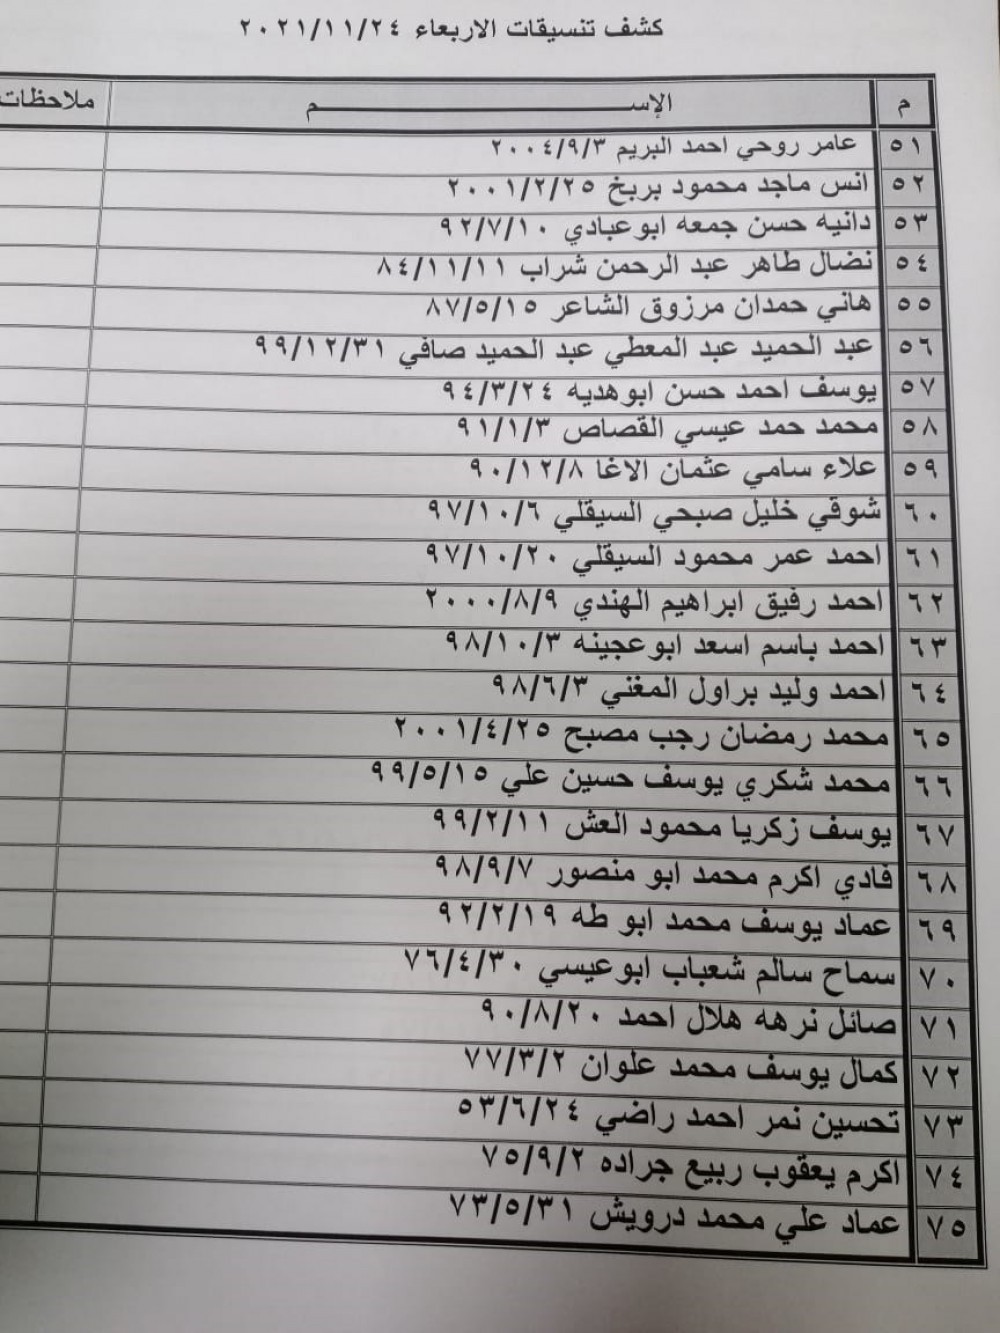 كشف تنسيقات الاربعاء ٢٠٢١/١١/٢٤
م الإســـــــــم ملاحظات
٥١ عامر روحي احمد البريم ٢٠٠٤/٩/٣
٥٢ انس ماجد محمود بربخ ٢٠٠١/٢/٢٥
٥٣ دانيه حسن جمعه ابوعبادي ٩٢/٧/١٠
٥٤ نضال طاهر عبد الرحمن شراب ٨٤/١١/١١
٥٥ هاني حمدان مرزوق الشاعر ٨٧/٥/١٥
٥٦ عبد الحميد عبد المعطي عبد الحميد صافي ٩٩/١٢/٣١
٥٧ يوسف احمد حسن ابوهديه ٩٤/٣/٢٤
٥٨ محمد حمد عيسي القصاص ٩١/١/٣
٥٩ علاء سامي عثمان الاغا ٩٠/١٢/٨
٦٠ شوقي خليل صبحي السيقلي ٩٧/١٠/٦
٦١ احمد عمر محمود السيقلي ٩٧/١٠/٢٠
٦٢ احمد رفيق ابراهيم الهندي ٢٠٠٠/٨/٩
٦٣ احمد باسم اسعد ابوعجينه ٩٨/١٠/٣
٦٤ احمد وليد براول المغني ٩٨/٦/٣
٦٥ محمد رمضان رجب مصبح ٢٠٠١/٤/٢٥
٦٦ محمد شكري يوسف حسين علي ٩٩/٥/١٥
٦٧ يوسف زكريا محمود العش ٩٩/٢/١١
٦٨ فادي اكرم محمد ابو منصور ٩٨/٩/٧
٦٩ عماد يوسف محمد ابو طه ٩٢/٢/١٩
٧٠ سماح سالم شعباب ابوعيسي ٧٦/٤/٣٠
٧١ صائل نرهه هلال احمد ٩٠/٨/٢٠
٧٢ كمال يوسف محمد علوان ٧٧/٣/٢
٧٣ تحسين نمر احمد راضي ٥٣/٦/٢٤
٧٤ اكرم يعقوب ربيع جراده ٧٥/٩/٢
٧٥ عماد علي محمد درويش ٧٣/٥/٣١